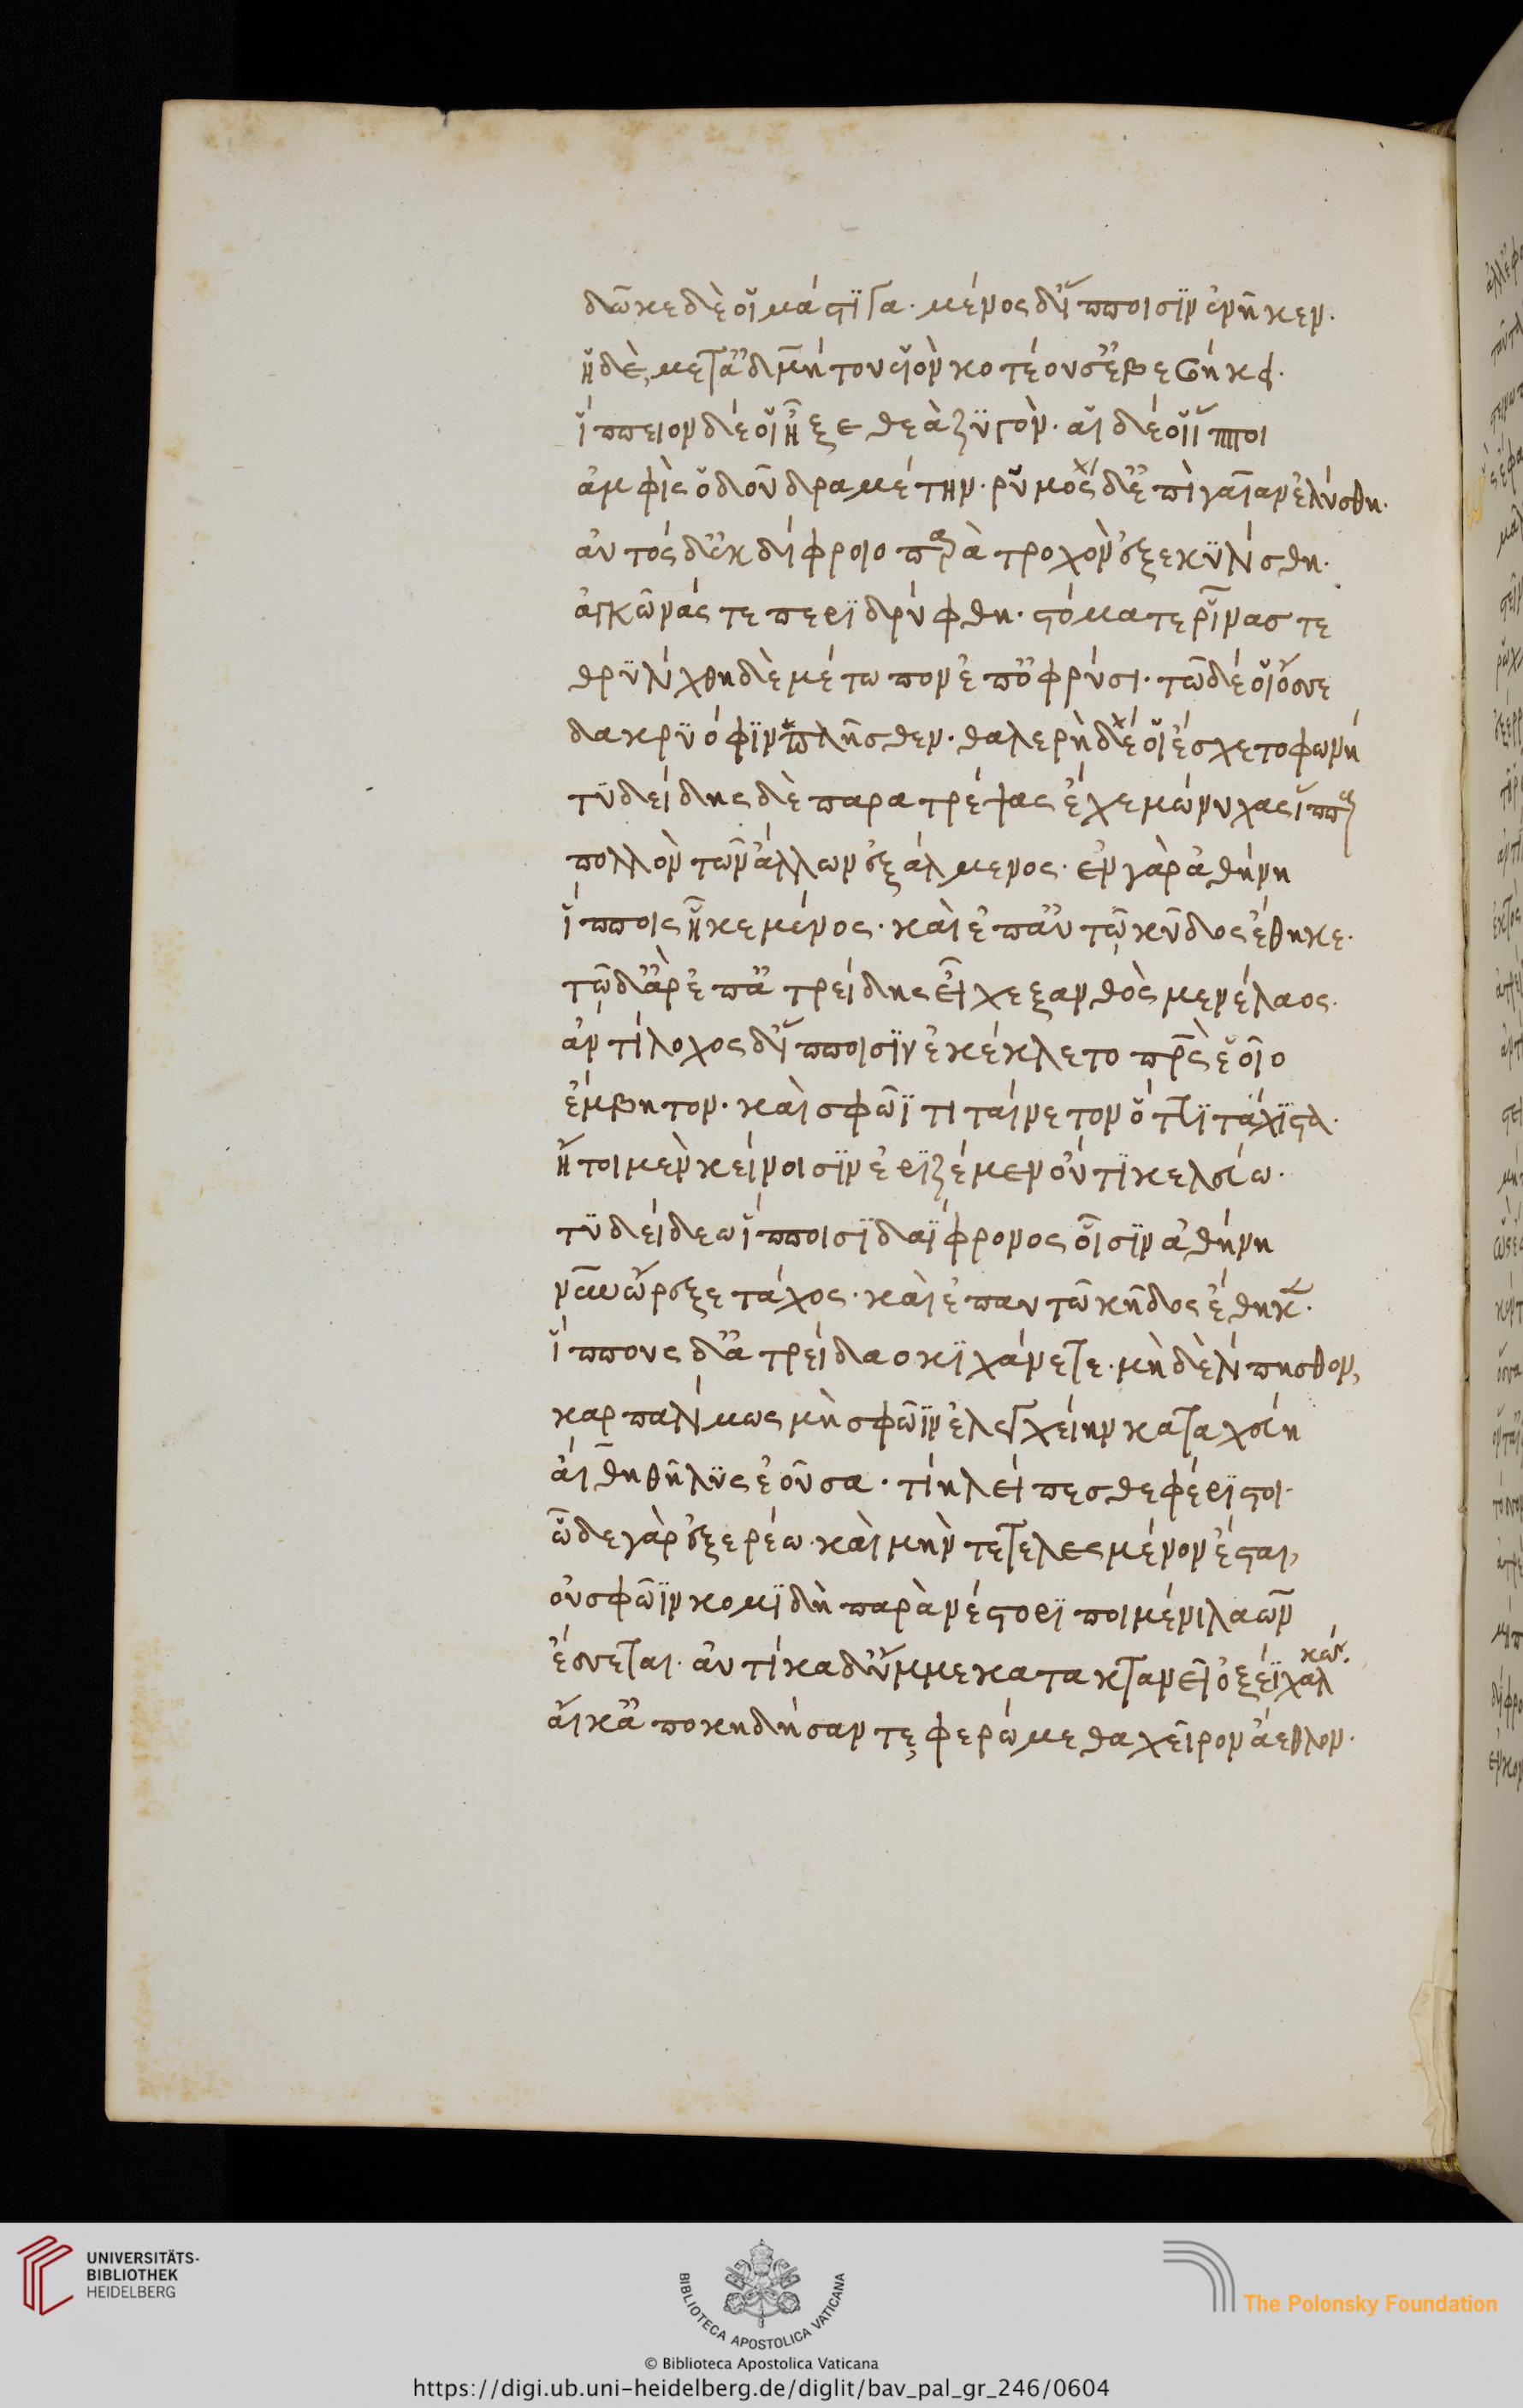 δῶκε δέ οἱ μάστιγα· μένος δ' ἵπποισιν ἐνῆκεν·
ἡ δὲ, μετ' ἀδμήτου υἱὸν κοτέουσ' ἐβεβήκει·
ἵππειον δέ οἱ ἦξε θεὰ ζυγόν· αἱ δέ οἱ ἵπποι
ἀμφὶς ὁδοῦ δραμέτην· ῥυμὸς δ' ἐπὶ γαῖαν ἐλύσθη·
αὐτὸς δ' ἐκ δίφροιο παρὰ τροχὸν ἐξεκυλίσθη·
ἀγκῶνάς τε περιδρύφθη· στόμα τε ῥῖνας τε
θρυλίχθη δὲ μέτωπον ἐπ' ὀφρύσι· τὼ δέ οἱ ὄσσε
δακρυόφιν πλῆσθεν· θαλερὴ δέ οἱ ἔσχετο φωνή
τυδείδης δὲ παρατρέψας ἔχε μώνυχας ἵππους
πολλὸν τῶν ἄλλων ἐξάλμενος· ἐν γὰρ ἀθήνη
ἵπποις ἧκε μένος· καὶ ἐπ' αὐτῷ κῦδος ἔθηκε·
τῷ δ' ἄρ' ἐπ' ἀτρείδης εἶχε ξανθὸς μενέλαος·
ἀντίλοχος δ' ἵπποισιν ἐκέκλετο πατρὸς ἑοῖο
ἔμβητον· καὶ σφῶϊ τιταίνετον ὅττι τάχιστα·
ἤτοι μὲν κείνοισιν ἐριζέμεν οὔτι κελεύω·
τυδείδεω ἵπποισι δαΐφρονος οἷσιν ἀθήνη
νῦν ὤρεξε τάχος· καὶ ἐπ' αυτῶ κῆδος ἔθηκεν·
ἵππους δ' ἀτρείδαο κιχάνετε· μὴ δὲ λίπησθον,
καρπαλίμως μὴ σφῶϊν ἐλεγχείην καταχεύη
αἴθη θῆλυς ἐοῦσα· τίη λείπεσθε φέριστοι·
ὧδε γὰρ ἐξερέω· καὶ μὴν τετελεσμένον ἔσται,
οὐ σφῶϊν κομιδὴ παρὰ νέστορι ποιμένι λαῶν
ἔσσεται· αὐτίκα δ' ὔμμε κατακτανεῖ ὀξέϊ χαλκῶ·
αἴ κ' ἀποκηδήσαντε φερώμεθα χεῖρον ἄεθλον·
UNIVERSITÄTS-
BIBLIOTHEK
HEIDELBERG
BIBLIOTECA APOSTOLICA VATICANA
The Polonsky Foundation
© Biblioteca Apostolica Vaticana
https://digi.ub.uni-heidelberg.de/diglit/bav_pal_gr_246/0604